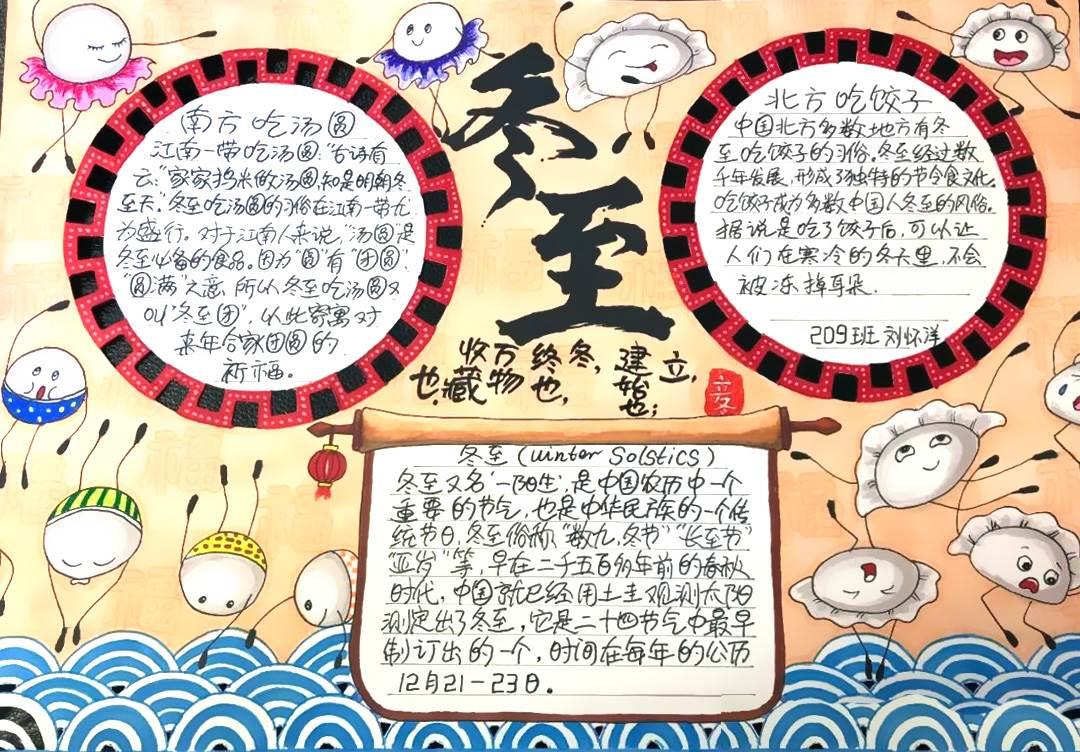 冬至
南方吃汤圆
江南一带吃汤圆:“古诗有
云:“家家捣米做汤圆,知是明朝冬
至天。”冬至吃汤圆的习俗在江南一带尤
为盛行。对于江南人来说,“汤圆”是
冬至必备的食品。因为“圆”有“团圆”
“圆满”之意,所以冬至吃汤圆又
叫“冬至团”,以此寄寓对
来年合家团圆的
祈福。
北方吃饺子
中国北方多数地方有冬
至吃饺子的习俗。冬至经过数
千年发展,形成了独特的节令食文化。
吃饺子成为多数中国人冬至的风俗。
据说是吃了饺子后,可以让
人们在寒冷的冬天里,不会
被冻掉耳朵.
209班 刘怀洋
立,建始也;
冬,终也,
万物收藏也.
冬至(winter Solstics)
冬至又名“一阳生”,是中国农历中一个
重要的节气,也是中华民族的一个传
统节日,冬至俗称“数九,冬节”“长至节”
“亚岁”等,早在二千五百多年前的春秋
时代,中国就已经用土圭观测太阳
测定出了冬至,它是二十四节气中最早
制订出的一个,时间在每年的公历
12月21-23日。